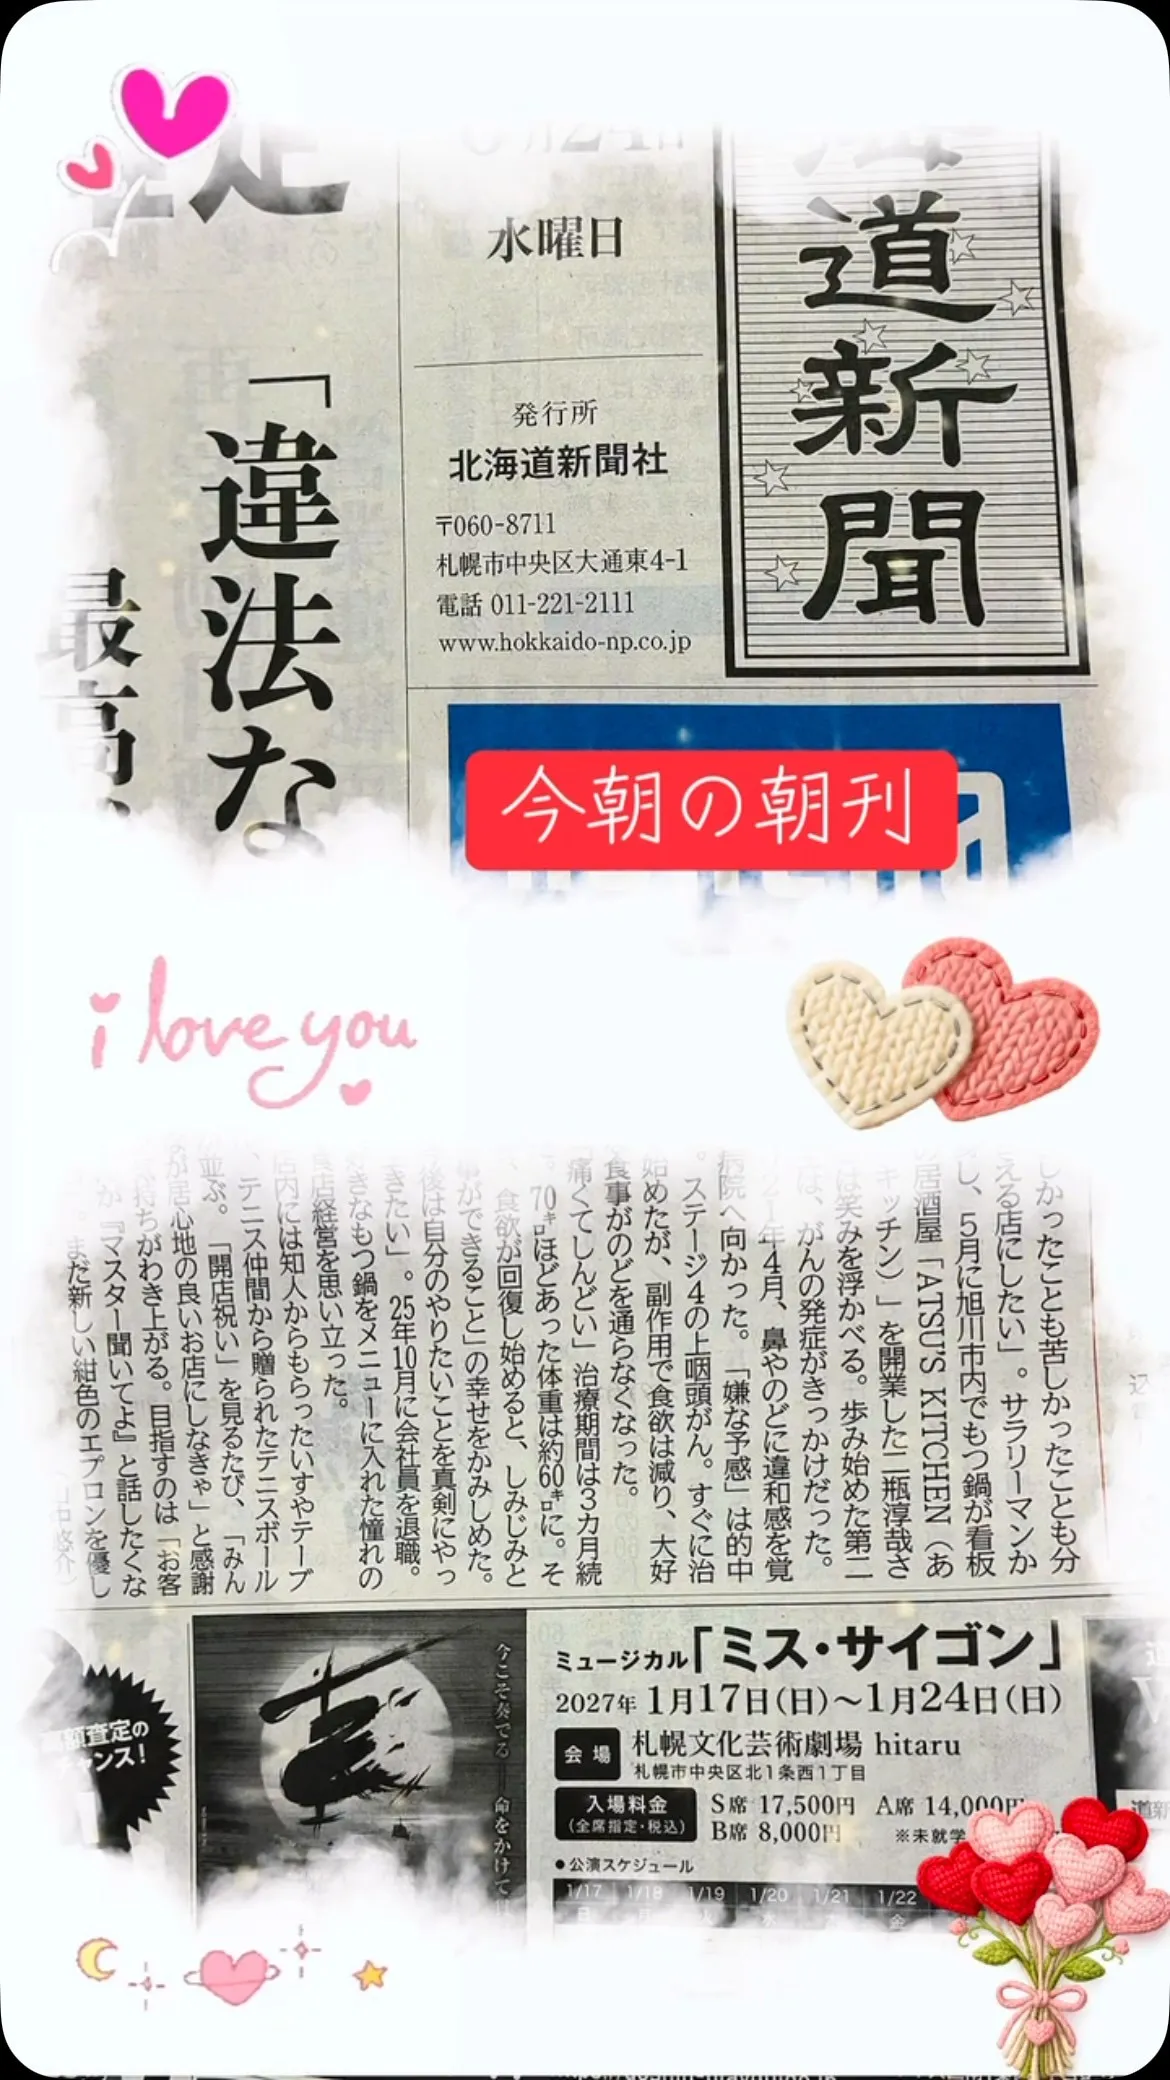 道新聞
水曜日
発行所
北海道新聞社
〒060-8711
札幌市中央区大通東4-1
電話 011-221-2111
www.hokkaido-np.co.jp
「違法な
最高
今朝の朝刊
i love you
しかったことも苦しかったことも分
える店にしたい」。サラリーマンか
し、5月に旭川市内でもつ鍋が看板
の居酒屋「ATSU'S KITCHEN（あ
キッチン）」を開業した二瓶淳哉さ
は笑みを浮かべる。歩み始めた第二
は、がんの発症がきっかけだった。
年4月、鼻やのどに違和感を覚
病院へ向かった。「嫌な予感」は的中
。ステージ4の上咽頭がん。すぐに治
始めたが、副作用で食欲は減り、大好
食事がのどを通らなくなった。
痛くてしんどい」治療期間は3カ月続
。70㌔ほどあった体重は約60㌔に。そ
、食欲が回復し始めると、しみじみと
事ができること」の幸せをかみしめた。
後は自分のやりたいことを真剣にやっ
きたい」。25年10月に会社員を退職。
きなもつ鍋をメニューに入れた憧れの
食店経営を思い立った。
店内には知人からもらったいすやテーブ
、テニス仲間から贈られたテニスボール
並ぶ。「開店祝い」を見るたび、「みん
が居心地の良いお店にしなきゃ」と感謝
持ちがわき上がる。目指すのは「お客
が『マスター聞いてよ』と話したくな
。まだ新しい紺色のエプロンを優し
額査定の
チャンス！
今こそ奏でる
命をかけて
ミュージカル「ミス・サイゴン」
2027年 1月17日(日)～1月24日(日)
会場 札幌文化芸術劇場 hitaru
札幌市中央区北1条西1丁目
入場料金
(全席指定・税込)
S席 17,500円 A席 14,000円
B席 8,000円 ※未就学
●公演スケジュール
1/17 1/18 1/19 1/20 1/21 1/22
日 月 火 水 木 金